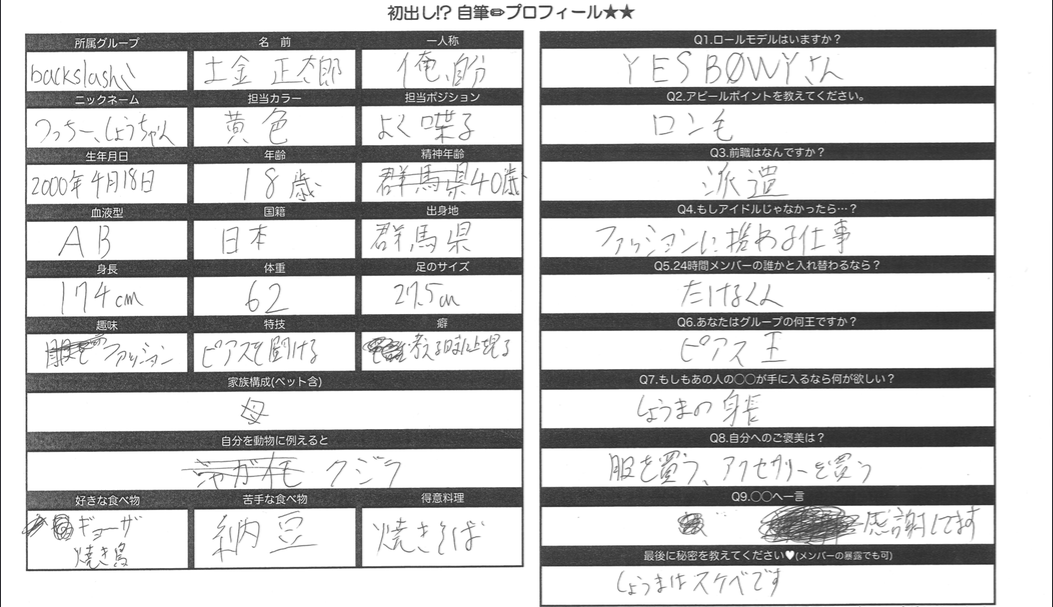 初出し!? 自筆✏プロフィール★★
所属グループ 名 前 一人称
backslash 土金 正太郎 俺、自分
ニックネーム 担当カラー 担当ポジション
つっちー、しょうちゃん 黄色 よく喋る
生年月日 年齢 精神年齢
2000年4月18日 18歳 群馬県40歳
血液型 国籍 出身地
AB 日本 群馬県
身長 体重 足のサイズ
174cm 62 27.5cm
趣味 特技 癖
ファッション ピアスを開ける 考える時に上を見る
家族構成(ペット含)
母
自分を動物に例えると
ジャガイモ クジラ
好きな食べ物 苦手な食べ物 得意料理
ギョーザ
焼き鳥 納豆 焼きそば
Q1.ロールモデルはいますか？
YES BØWYさん
Q2.アピールポイントを教えてください。
ロン毛
Q3.前職はなんですか？
派遣
Q4.もしアイドルじゃなかったら…？
ファッションに携わる仕事
Q5.24時間メンバーの誰かと入れ替わるなら？
たけるくん
Q6.あなたはグループの何王ですか？
ピアス王
Q7.もしもあの人の○○が手に入るなら何が欲しい？
しょうまの身長
Q8.自分へのご褒美は？
服を買う、アクセサリーを買う
Q9.○○へ一言
感謝してます
最後に秘密を教えてください♥(メンバーの暴露でも可)
しょうまはスケベです